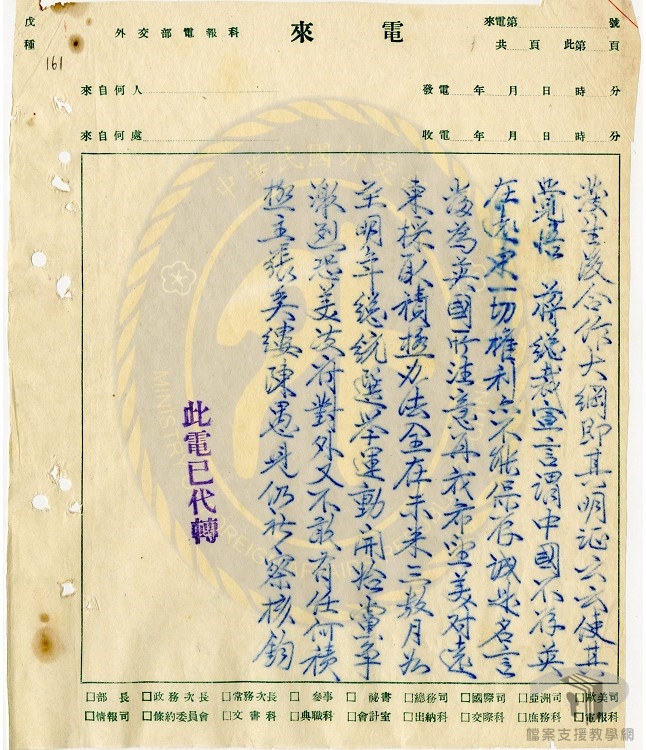 戊種
161
外交部電報科
來電
來電第 號
共 頁 此第 頁
來自何人
發電 年 月 日 時 分
來自何處
收電 年 月 日 時 分
發生後合作大綱即其明証只六使其
覺悟 蔣總裁宣言謂中國不存英
在遠東一切權利亦不能保存誠此名言
當為英國所注意再我希望美對遠
東採取積極辦法全在未來三數月如
至明年總統選舉運動開始黨爭
激烈恐美政府對外又不敢有任何積
極主張矣縷陳愚見仍祈察核鈞
此電已代轉
□部長 □政務次長 □常務次長 □參事 □祕書 □總務司 □國際司 □亞洲司 □歐美司
□情報司 □條約委員會 □文書科 □典職科 □會計室 □出納科 □交際科 □庶務科 □電報科
檔案支援教學網